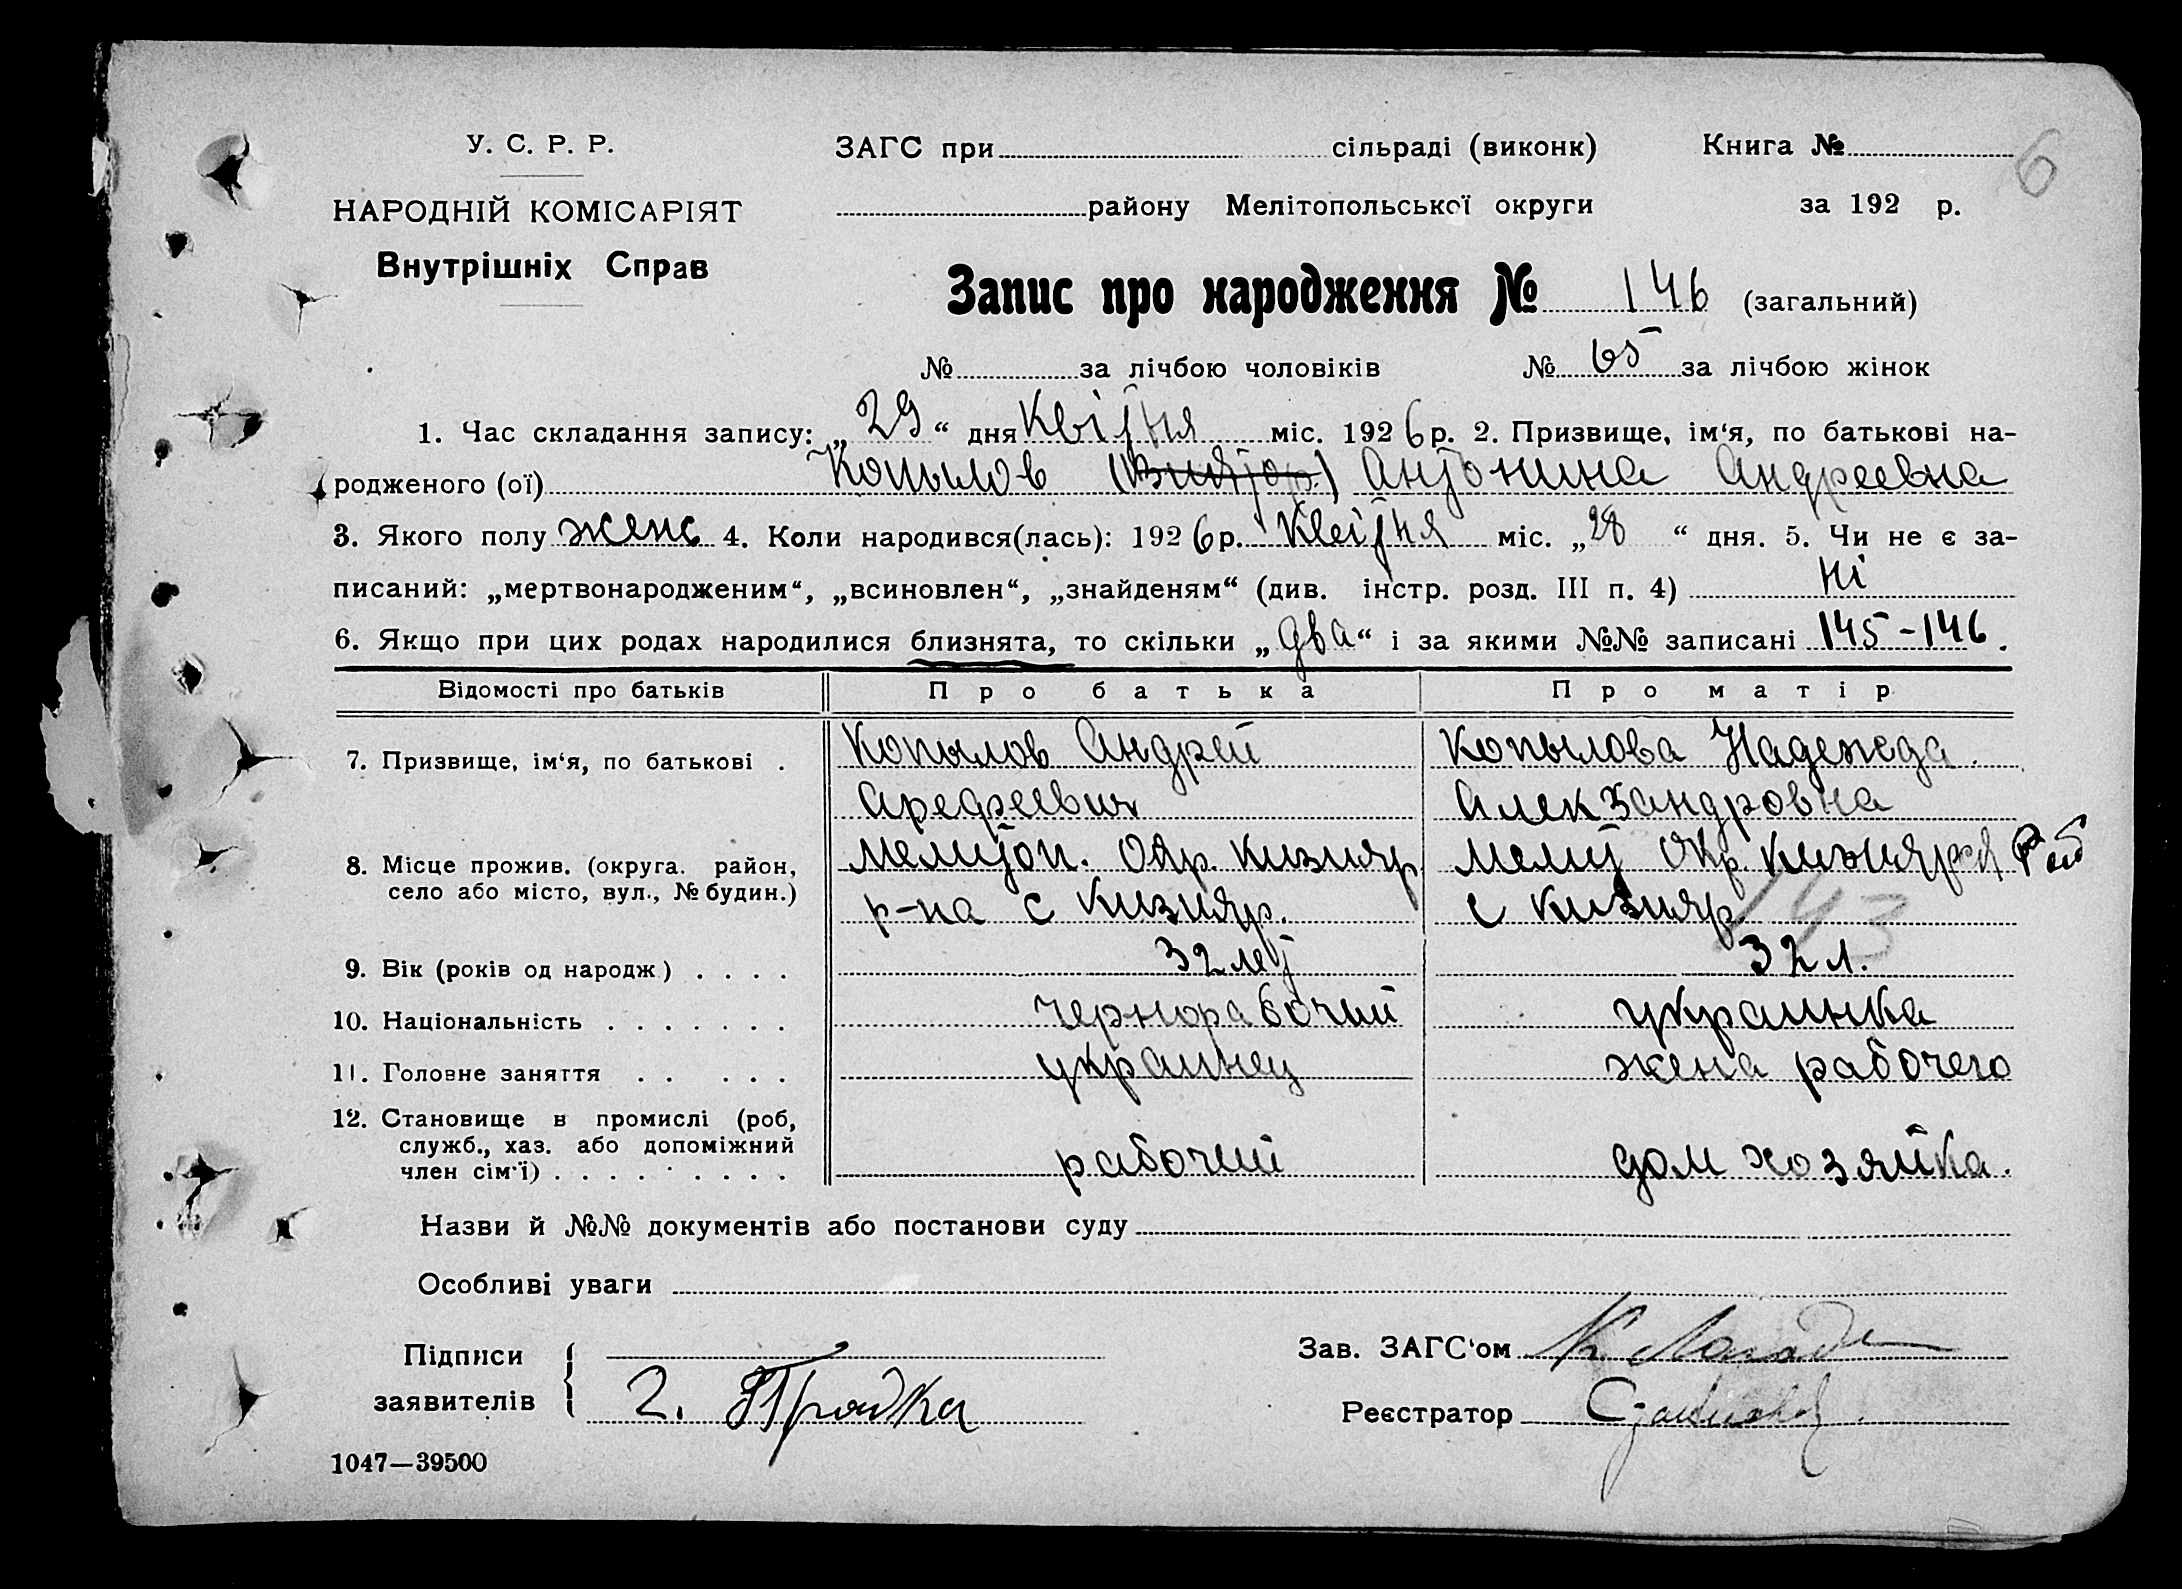 У. С. Р. Р.
НАРОДНІЙ КОМІСАРІЯТ
Внутрішніх Справ
ЗАГС при сільраді (виконк) Книга №
6
району Мелітопольської округи за 192 р.
Запис про народження № 146 (загальний)
№ за лічбою чоловіків № 65 за лічбою жінок
1. Час складання запису: „29“ дня Квітня міс. 1926 р. 2. Призвище, ім‘я, по батькові на-
родженого (ої) Копылов Антонина Андреевна
3. Якого полу женс 4. Коли народився(лась): 1926 р. Квітня міс. „28“ дня. 5. Чи не є за-
писаний: „мертвонародженим“, „всиновлен“, „знайденям“ (див. інстр. розд. III п. 4) ні
6. Якщо при цих родах народилися близнята, то скільки „два“ і за якими №№ записані 145-146.
Відомості про батьків Про батька Про матір
7. Призвище, ім‘я, по батькові . Копылов Андрей Копылова Надежда
Арефеевич Алекзандровна
8. Місце прожив. (округа. район, Мелитоп. Окр. Кизияр Мелит Окр. Кизияр
село або місто, вул., № будин.) р-на с Кизияр. с Кизияр
143
9. Вік (років од народж) . . . . 32 лет 32 л.
10. Національність . . . . . . . чернорабочий украинка
11. Головне заняття . . . . . украинец жена рабочего
12. Становище в промислі (роб,
служб., хаз. або допоміжний
член сім‘ї) . . . . . . . . рабочий дом хозяйка.
Назви й №№ документів або постанови суду
Особливі уваги
Підписи
заявителів 2.
Зав. ЗАГС‘ом
Реєстратор
1047—39500